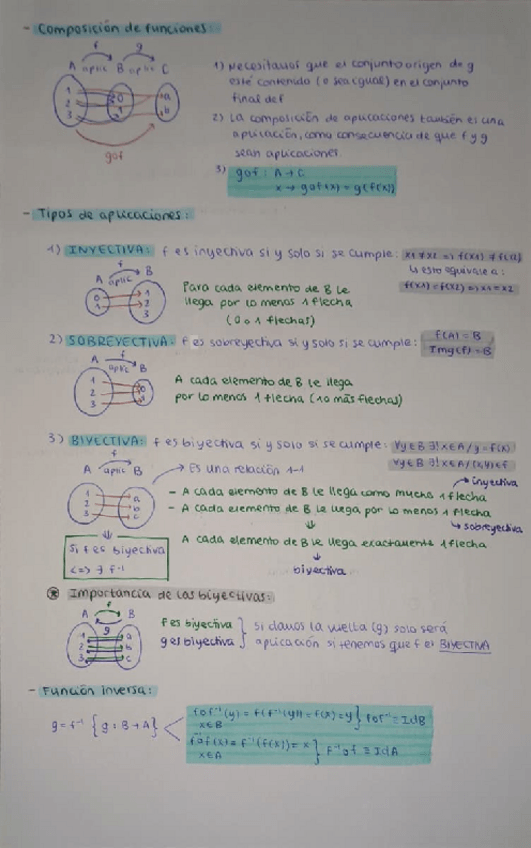 - Composición de funciones:
f g
A aplic B aplic C
1 2 3 0 1 a b
gof
1) Necesitamos que el conjunto origen de g
esté contenido (o sea igual) en el conjunto
final de f
2) La composición de aplicaciones también es una
aplicación, como consecuencia de que f y g
sean aplicaciones.
3) gof : A → C
x → gof(x) = g(f(x))
- Tipos de aplicaciones:
1) INYECTIVA: f es inyectiva si y solo si se cumple: x1 ≠ x2 => f(x1) ≠ f(x2)
↳ esto equivale a:
f(x1) = f(x2) => x1 = x2
f
A aplic B
0 1 1 2 3
Para cada elemento de B le
llega por lo menos 1 flecha
(0 o 1 flechas)
2) SOBREYECTIVA: f es sobreyectiva si y solo si se cumple: f(A) = B
Img(f) = B
f
A aplic B
1 2 3 0
A cada elemento de B le llega
por lo menos 1 flecha (1 o más flechas)
3) BIYECTIVA: f es biyectiva si y solo si se cumple: ∀y∈B ∃! x∈A / y = f(x)
∀y∈B ∃! x∈A / (x,y)∈f
f
A aplic B
1 2 3 a b c
→ Es una relación 1-1
→ inyectiva
- A cada elemento de B le llega como mucho 1 flecha
- A cada elemento de B le llega por lo menos 1 flecha
↳ sobreyectiva
A cada elemento de B le llega exactamente 1 flecha
biyectiva
Si f es biyectiva
<=> ∃ f⁻¹
⊛ Importancia de las biyectivas:
f
A B
g
1 2 3 a b c
f es biyectiva
g es biyectiva
} si damos la vuelta (g) solo será
aplicación si tenemos que f es BIYECTIVA
- Función inversa:
g = f⁻¹ { g : B → A }
fof⁻¹(y) = f(f⁻¹(y)) = f(x) = y } fof⁻¹ ≡ IdB
x∈B
f⁻¹of(x) = f⁻¹(f(x)) = x } f⁻¹of ≡ IdA
x∈A